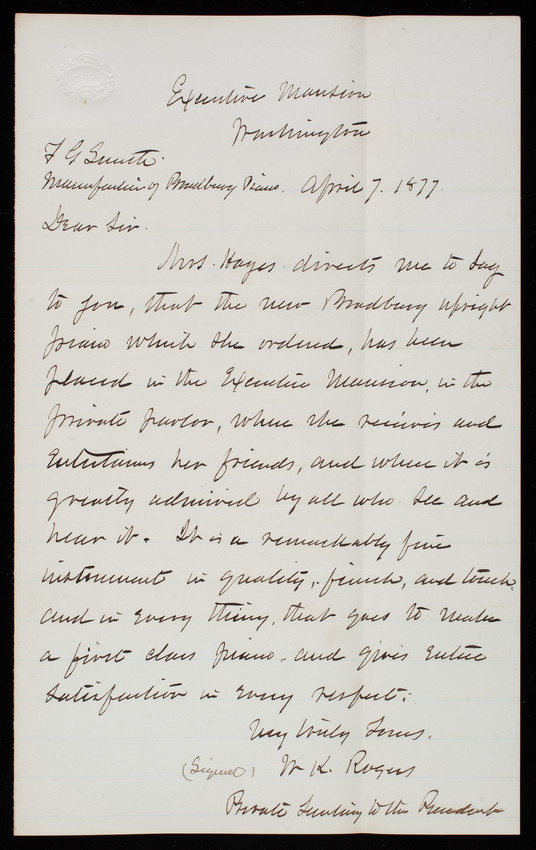 Executive Mansion
Washington
F G Smith.
Manufacturer of Bradbury Piano. April 7. 1877.
Dear Sir.
Mrs. Hayes directs me to say
to you, that the new Bradbury upright
piano which she ordered, has been
placed in the Executive Mansion, in the
private parlor, where she receives and
entertains her friends, and where it is
greatly admired by all who see and
hear it. It is a remarkably fine
instrument in quality, finish, and touch,
and in every thing, that goes to make
a first class piano, and gives entire
satisfaction in every respect.
Very truly Yours.
(Signed) W K. Rogers
Private Secretary to the President